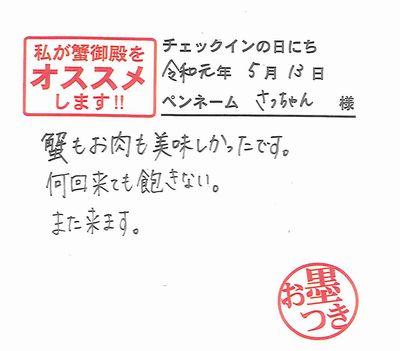 私が蟹御殿を
オススメ
します!!
チェックインの日にち
令和元年 5月13日
ペンネーム さっちゃん 様
蟹もお肉も美味しかったです。
何回来ても飽きない。
また来ます。
お墨つき